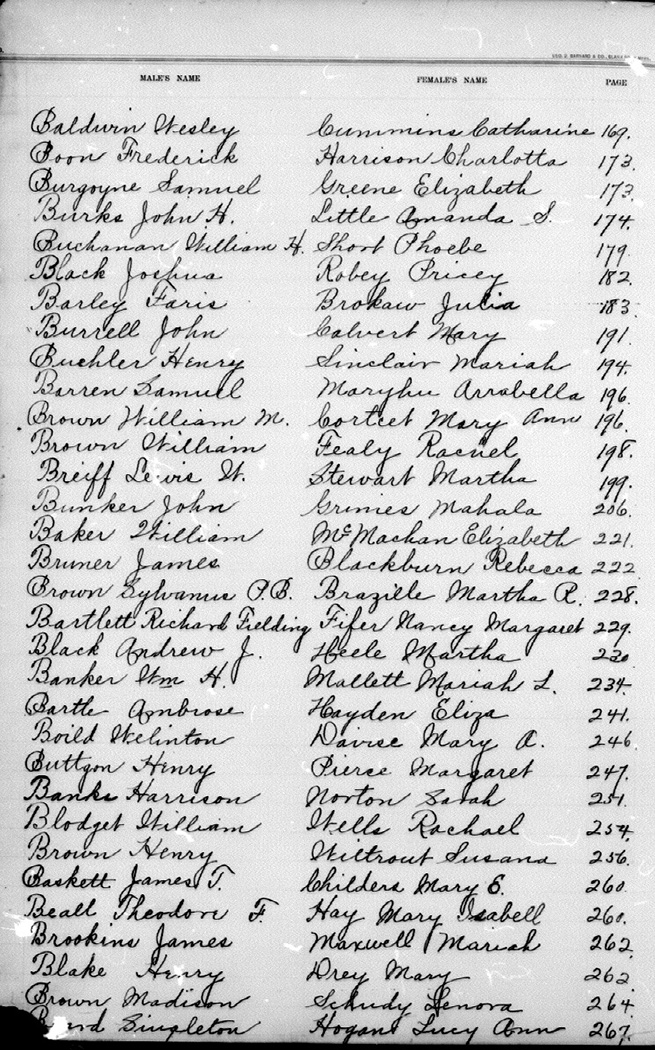 GEO. D. BARNARD & CO.,
MALE'S NAME FEMALE'S NAME PAGE
Baldwin Wesley Cummins Catharine 169.
Boon Frederick Harrison Charlotta 173.
Burgoyne Samuel Greene Elizabeth 173.
Burks John H. Little Amanda S. 174.
Buchanan William H. Short Phoebe 179
Black Joshua Robey Pricey 182.
Barley Faris Brokaw Julia 183
Burrell John Calvert Mary 191.
Buehler Henry Sinclair Mariah 194.
Barren Samuel Maryhu Arrabella 196.
Brown William M. Mary Ann 196.
Brown William Fealy Rachel 198.
Breiff Lewis W. Stewart Martha 199.
Bunker John Grimes Mahala 206.
Baker William McMachan Elizabeth 221.
Bruner James Blackburn Rebecca 222
Brown Sylvanus P.B. Brazille Martha R. 228.
Bartlett Richard Fielding Fifer Nancy Margaret 229.
Black Andrew J. Heele Martha 230
Banker Wm H. Mallett Mariah L. 234.
Bartle Ambrose Hayden Eliza 241.
Boild Welinton Davise Mary A. 246
Buttgon Henry Pierce Margaret 247.
Banks Harrison Norton Sarah 251.
Blodget William Wells Rachael 254.
Brown Henry Wiltrout Susana 256.
Baskett James T. Childers Mary E. 260.
Beall Theodore F. Hay Mary Isabell 260.
Brookins James Maxwell Mariah 262.
Blake Henry Drey Mary 262
Brown Madison Schudy Lenora 264
Singleton Hogan Lucy Ann 267.